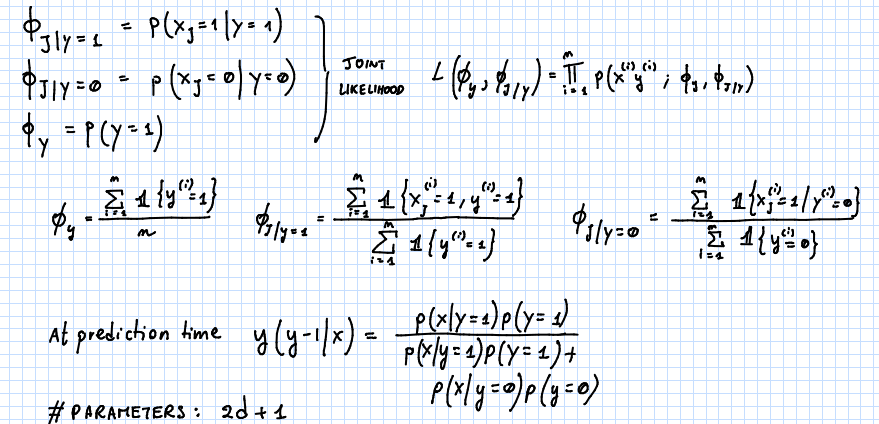 ϕ_{J|Y=1} = P(x_J=1|Y=1)
ϕ_{J|Y=0} = P(x_J=0|Y=0)
ϕ_Y = P(Y=1)
JOINT LIKELIHOOD L(ϕ_y, ϕ_{J|Y}) = ∏_{i=1}^{m} P(x^{(i)} y^{(i)}; ϕ_y, ϕ_{J|Y})
ϕ_y = \frac{∑_{i=1}^{m} 𝟙{y^{(i)}=1}}{m} ϕ_{J|y=1} = \frac{∑_{i=1}^{m} 𝟙{x_J^{(i)}=1, y^{(i)}=1}}{∑_{i=1}^{m} 𝟙{y^{(i)}=1}} ϕ_{J|y=0} = \frac{∑_{i=1}^{m} 𝟙{x_J^{(i)}=1/y^{(i)}=0}}{∑_{i=1}^{m} 𝟙{y^{(i)}=0}}
At prediction time y(y-1|x) = \frac{P(x|y=1)P(y=1)}{P(x|y=1)P(y=1)+P(x|y=0)P(y=0)}
# PARAMETERS: 2d+1